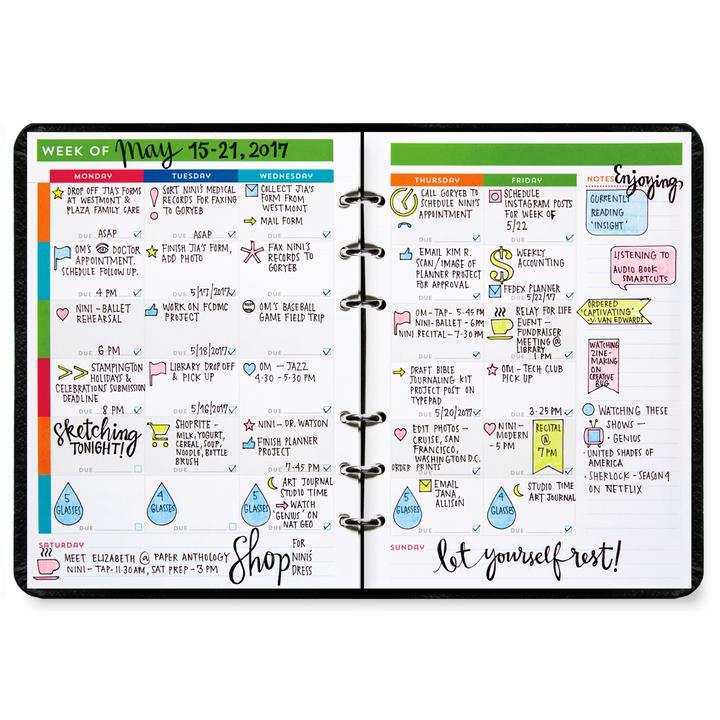 WEEK OF May 15-21, 2017
MONDAY
DROP OFF JIA'S FORMS
AT WESTMONT &
PLAZA FAMILY CARE
DUE ASAP
OM'S DOCTOR
APPOINTMENT.
SCHEDULE FOLLOW UP.
DUE 4 PM
NINI - BALLET
REHEARSAL
DUE 6 PM
STAMPINGTON
HOLIDAYS &
CELEBRATIONS SUBMISSION
DEADLINE
DUE 8 PM
Sketching
TONIGHT!
DUE
5
GLASSES
DUE
TUESDAY
SORT NINI'S MEDICAL
RECORDS FOR FAXING
TO GORYEB
DUE ASAP
FINISH JIA'S FORM,
ADD PHOTO
DUE 5/17/2017
WORK ON FCDMC
PROJECT
DUE 5/18/2017
LIBRARY DROP OFF
& PICK UP
DUE 5/16/2017
SHOPRITE -
MILK, YOGURT,
CEREAL, SOUP,
NOODLE, BOTTLE
BRUSH
DUE
4
GLASSES
DUE
WEDNESDAY
COLLECT JIA'S
FORM FROM
WESTMONT
MAIL FORM
DUE
FAX NINI'S
RECORDS TO
GORYEB
DUE
OM'S BASEBALL
GAME FIELD TRIP
DUE
OM - JAZZ
4:30 - 5:30 PM
DUE
NINI - DR. WATSON
FINISH PLANNER
PROJECT
DUE 7:45 PM
5
GLASSES
ART JOURNAL
STUDIO TIME
WATCH
'GENIUS' ON
NAT GEO
DUE
SATURDAY
MEET ELIZABETH @ PAPER ANTHOLOGY
NINI - TAP - 11:30AM, SAT PREP - 3 PM
Shop FOR
NINI'S
DRESS
THURSDAY
CALL GORYEB TO
SCHEDULE NINI'S
APPOINTMENT
DUE
EMAIL KIM R.
SCAN/IMAGE OF
PLANNER PROJECT
FOR APPROVAL
DUE
OM - TAP - 5:45 PM
NINI - BALLET - 6PM
NINI RECITAL - 7:30 PM
DUE
DRAFT BIBLE
JOURNALING KIT
PROJECT POST ON
TYPEPAD
DUE 5/20/2017
EDIT PHOTOS -
CRUISE, SAN
FRANCISCO,
WASHINGTON D.C.
ORDER PRINTS
DUE
5
GLASSES
EMAIL
JANA,
ALLISON
DUE
FRIDAY
SCHEDULE
INSTAGRAM POSTS
FOR WEEK OF
5/22
DUE
WEEKLY
ACCOUNTING
FEDEX PLANNER
DUE 5/22/17
RELAY FOR LIFE
EVENT -
FUNDRAISER
MEETING @
LIBRARY
DUE 1 PM
OM - TECH CLUB
PICK UP
DUE 3:25 PM
NINI -
MODERN
- 5 PM
RECITAL
@
7 PM
DUE
4
GLASSES
STUDIO TIME
ART JOURNAL
DUE
NOTES Enjoying,
CURRENTLY
READING
'INSIGHT'
LISTENING TO
AUDIO BOOK
SMARTCUTS
ORDERED
'CAPTIVATING'
- V. VAN EDWARDS
WATCHING
'ZINE-
MAKING
ON
CREATIVE
BUG
WATCHING THESE
SHOWS -
· GENIUS
· UNITED SHADES OF
AMERICA
· SHERLOCK - SEASON 4
ON NETFLIX
SUNDAY
let yourself rest!